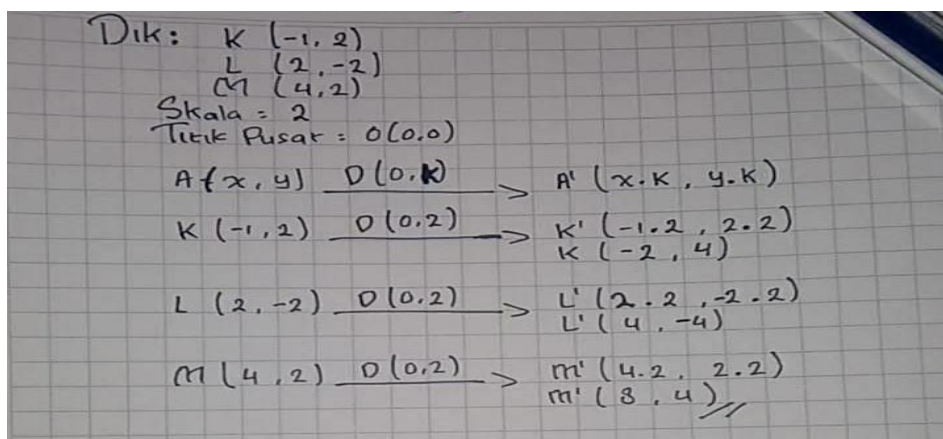 Dik: K (-1, 2)
L (2, -2)
M (4, 2)
Skala = 2
Titik Pusat = O(0.0)
A(x, y) D(0.K) → A' (x.K, y.K)
K (-1, 2) D(0,2) → K' (-1.2, 2.2)
K (-2, 4)
L (2, -2) D(0,2) → L' (2.2, -2.2)
L' (4, -4)
M (4, 2) D(0,2) → M' (4.2, 2.2)
M' (8, 4)